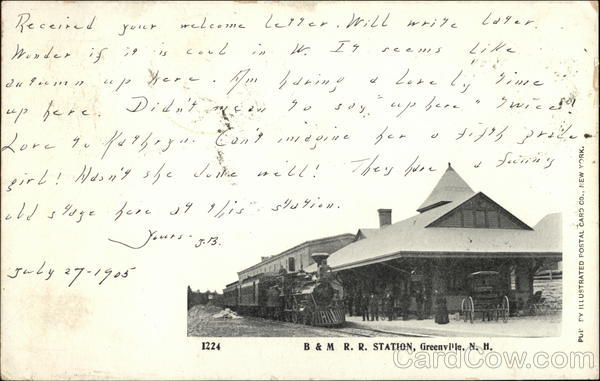 Received your welcome letter. Will write later.
Wonder if it is cool in W. It seems like
autumn up here. Am having a lovely time
up here. Didn't mean to say "up here" twice!
Love to Kathryn. Can't imagine her a fifth grade
girl! Hasn't she done well! They have a funny
old stage here at this station.
Yours - J.B.
July 27-1905
PUB. BY ILLUSTRATED POSTAL CARD CO., NEW YORK.
1224 B & M R. R. STATION, Greenville, N. H.
CardCow.com